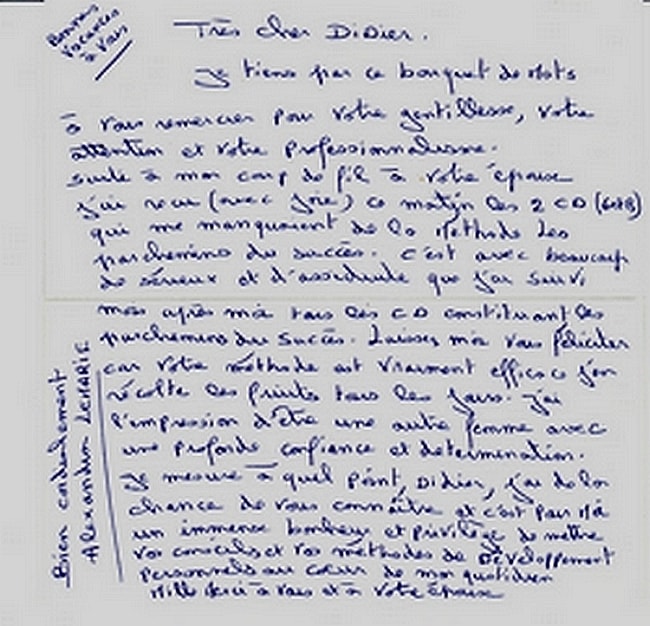 Bonnes
Vacances
à Vous
Très cher Didier.
Je tiens par ce bouquet de Mots
à vous remercier pour votre gentillesse, votre
attention et votre professionnalisme.
suite à mon coup de fil à votre épouse
j'ai reçu (avec joie) ce matin les 2 CD (6et8)
qui me manquaient de la Méthode Les
parchemins du succès. C'est avec beaucoup
de sérieux et d'assiduité que j'ai suivi
mois après mois tous les CD constituant les
parchemins du succès. Laissez moi vous féliciter
car votre méthode est vraiment efficace j'en
récolte les fruits tous les jours. J'ai
l'impression d'être une autre femme avec
une profonde confiance et détermination.
Je mesure à quel point, Didier, j'ai de la
chance de vous connaître et c'est pour Moi
un immense bonheur et privilège de mettre
vos conseils et vos méthodes de Développement
Personnels au cœur de mon quotidien
Mille Merci à vous et à votre épouse
Bien cordialement